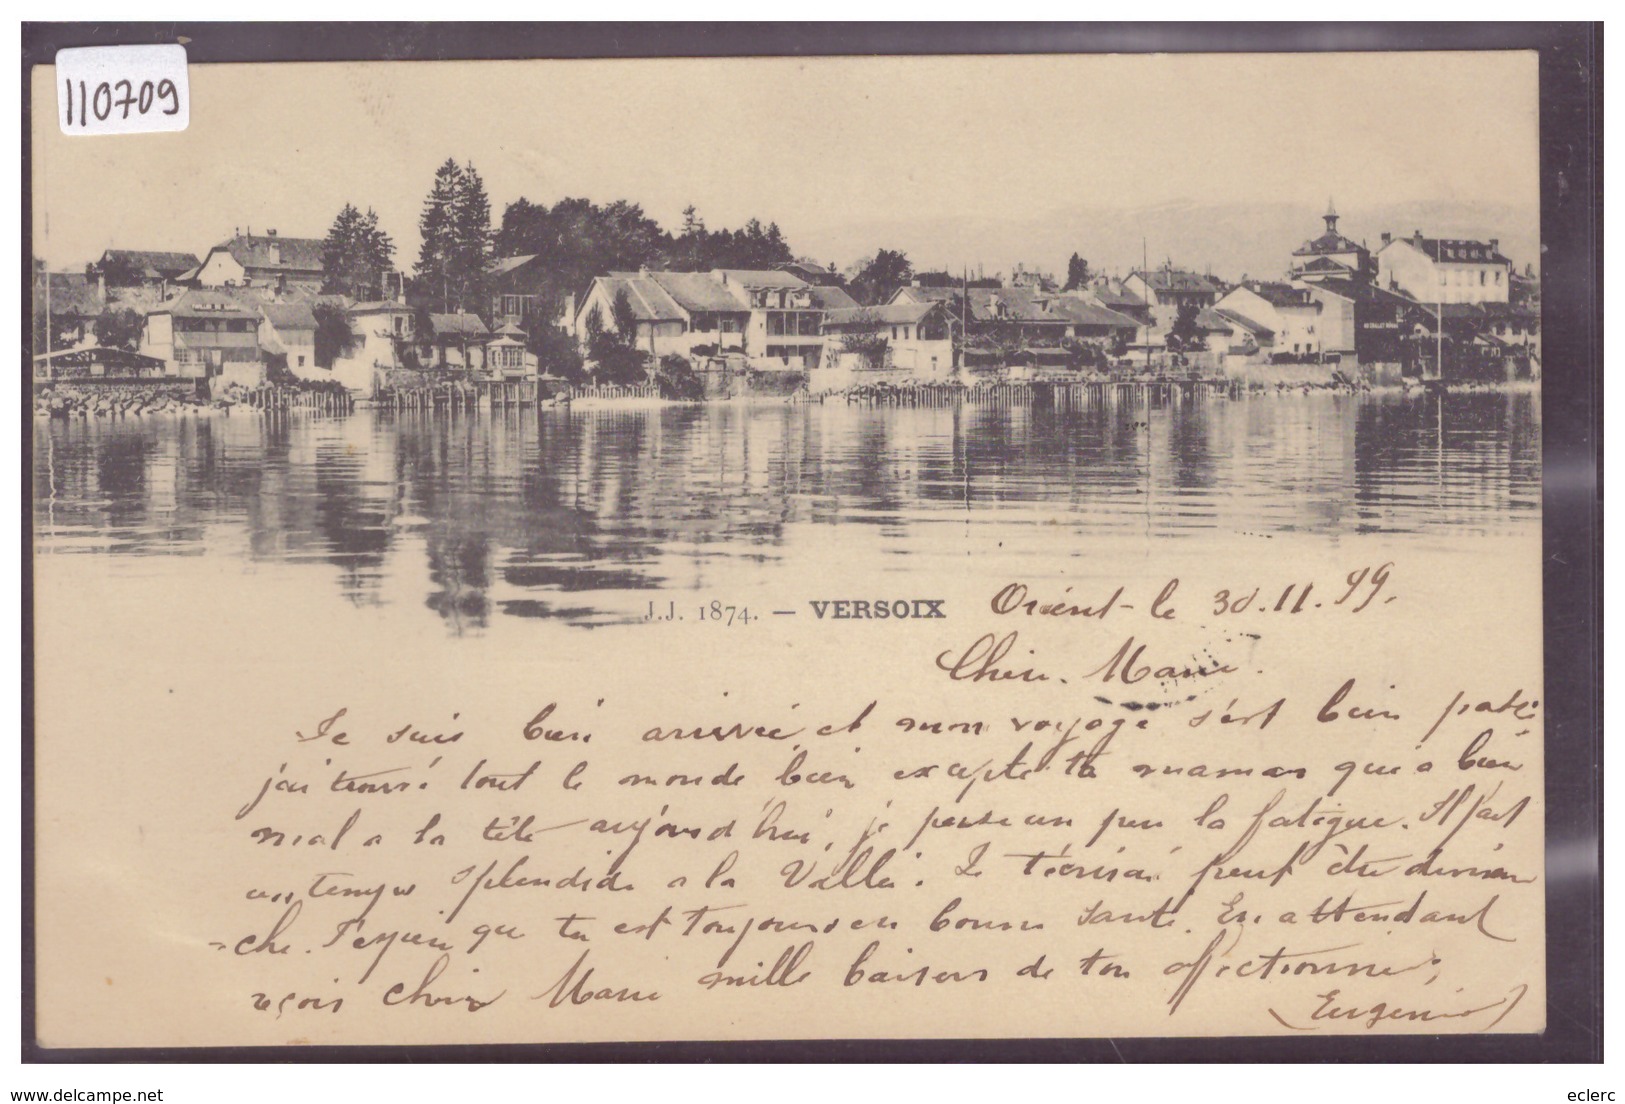 110709
AU CHALET
J.J. 1874. — VERSOIX
Orient - le 30.11.99.
Chère. Marie.
Je suis bien arrivée, et mon voyage s'est bien passé
j'ai trouvé tout le monde bien excepte ta maman qui a bien
mal a la tête aujourd'hui, je pense un peu la fatigue. Il fait
un temps splendide a la Vallée. Je t'écrirai peut être diman
-che. J'espère que tu est toujours en bonne santé. En attendant
reçois chère Marie mille baisers de ton affectionnée,
Eugénie
delcampe.net
eclerc